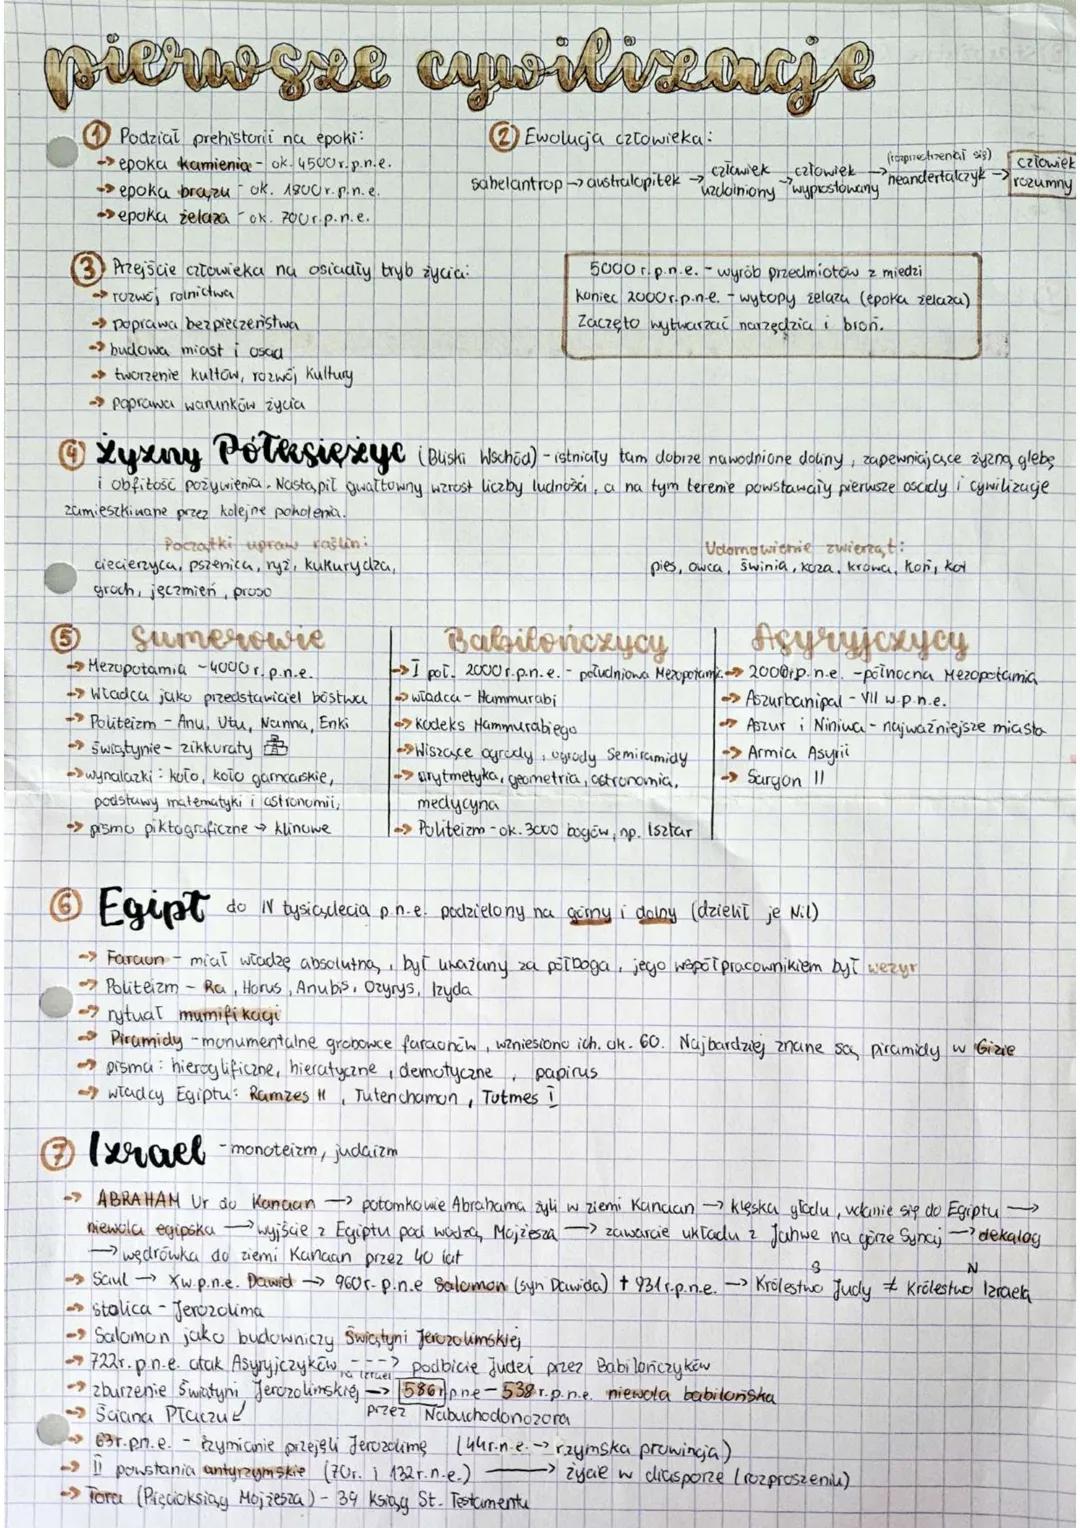 pierwsze cywilizacje
① Podział prehistorii na epoki:
→ epoka kamienia - ok. 4500r.p.n.e.
→ epoka brązu - ok. 1800r.p.n.e.
→ epoka żelaza - ok. 700r.p.n.e.
② Ewolucja człowieka:
sahelantrop → australopitek → człowiek uzdolniony → człowiek wyprostowany → (rozprzestrzeniał się) neandertalczyk → człowiek rozumny
③ Przejście człowieka na osiadły tryb życia:
→ rozwój rolnictwa
→ poprawa bezpieczeństwa
→ budowa miast i osad
→ tworzenie kultów, rozwój kultury
→ poprawa warunków życia
5000 r.p.n.e. - wyrób przedmiotów z miedzi
koniec 2000r.p.n.e. - wytopy żelaza (epoka żelaza)
Zaczęto wytwarzać narzędzia i broń.
④ Żyzny Półksiężyc (Bliski Wschód) - istniały tam dobrze nawodnione doliny, zapewniające żyzną glebę
i obfitość pożywienia. Nastąpił gwałtowny wzrost liczby ludności, a na tym terenie powstawały pierwsze osady i cywilizacje
zamieszkiwane przez kolejne pokolenia.
Początki upraw roślin:
ciecierzyca, pszenica, ryż, kukurydza,
groch, jęczmień, proso
Udomowienie zwierząt:
pies, owca, świnia, koza, krowa, koń, kot
⑤ Sumerowie
→ Mezopotamia ~4000r.p.n.e.
→ Władca jako przedstawiciel bóstwa
→ Politeizm - Anu, Utu, Nanna, Enki
→ świątynie - zikkuraty
→ wynalazki: koło, koło garncarskie,
podstawy matematyki i astronomii,
→ pismo piktograficzne → klinowe
Babilończycy
→ I poł. 2000r.p.n.e. - południowa Mezopotamia
→ władca - Hammurabi
→ Kodeks Hammurabiego
→ Wiszące ogrody, ogrody Semiramidy
→ arytmetyka, geometria, astronomia,
medycyna
→ Politeizm - ok. 3000 bogów, np. Isztar
Asyryjczycy
→ 2000r.p.n.e. - północna Mezopotamia
→ Aszurbanipal - VII w.p.n.e.
→ Aszur i Niniwa - najważniejsze miasta
→ Armia Asyrii
→ Sargon II
⑥ Egipt do IV tysiąclecia p.n.e. podzielony na górny i dolny (dzielił je Nil)
→ Faraon - miał władzę absolutną, był uważany za półboga, jego współpracownikiem był wezyr
→ Politeizm - Ra, Horus, Anubis, Ozyrys, Izyda
→ rytuał mumifikacji
→ Piramidy - monumentalne grobowce faraonów, wzniesiono ich ok. 60. Najbardziej znane są piramidy w Gizie
→ pisma: hieroglificzne, hieratyczne, demotyczne, papirus
→ władcy Egiptu: Ramzes II, Tutenchamon, Totmes I
⑦ Izrael - monoteizm, judaizm
→ ABRAHAM Ur do Kanaan → potomkowie Abrahama żyli w ziemi Kanaan → klęska głodu, udanie się do Egiptu →
niewola egipska → wyjście z Egiptu pod wodzą Mojżesza → zawarcie układu z Jahwe na górze Synaj → dekalog
→ wędrówka do ziemi Kanaan przez 40 lat
S N
→ Saul → X w.p.n.e. Dawid → 960r.p.n.e Salomon (syn Dawida) † 931r.p.n.e. → Królestwo Judy ≠ Królestwo Izraela
→ stolica - Jerozolima
→ Salomon jako budowniczy Świątyni Jerozolimskiej
→ 722r.p.n.e. atak Asyryjczyków na Izrael ---> podbicie Judei przez Babilończyków
→ zburzenie Świątyni Jerozolimskiej → 586r.p.n.e - 538 r.p.n.e. niewola babilońska
→ Ściana Płaczu przez Nabuchodonozora
→ 63r.p.n.e. - Rzymianie przejęli Jerozolimę (44r.n.e. → rzymska prowincja)
→ II powstania antyrzymskie (70r. i 132r.n.e.) → życie w diasporze (rozproszeniu)
→ Tora (Pięcioksiąg Mojżesza) - 39 ksiąg St. Testamentu